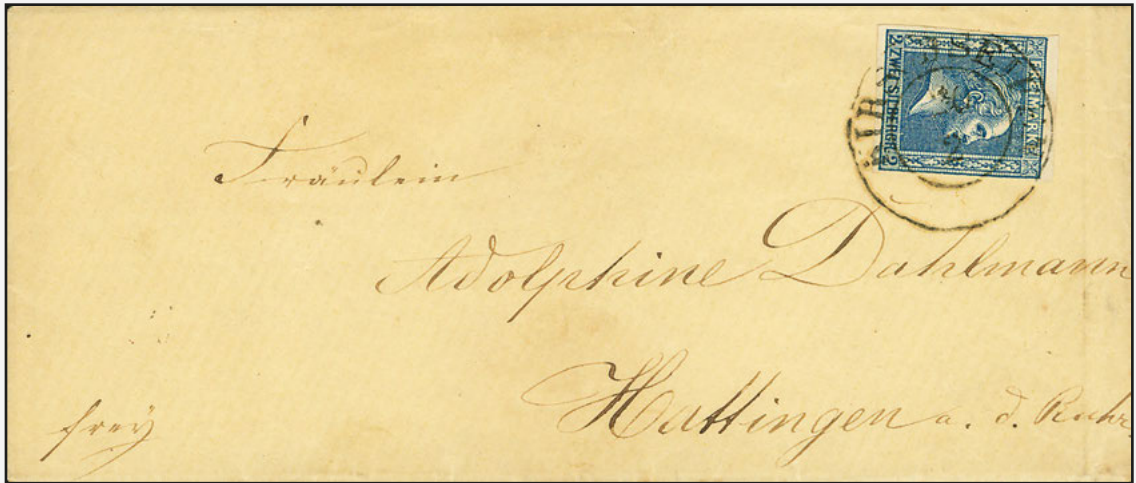 FREIMARKE
2. ZWEI SILBERGR. 2
Fräulein
Adolphine Dahlmann
Hattingen a. d. Ruhr.
frey